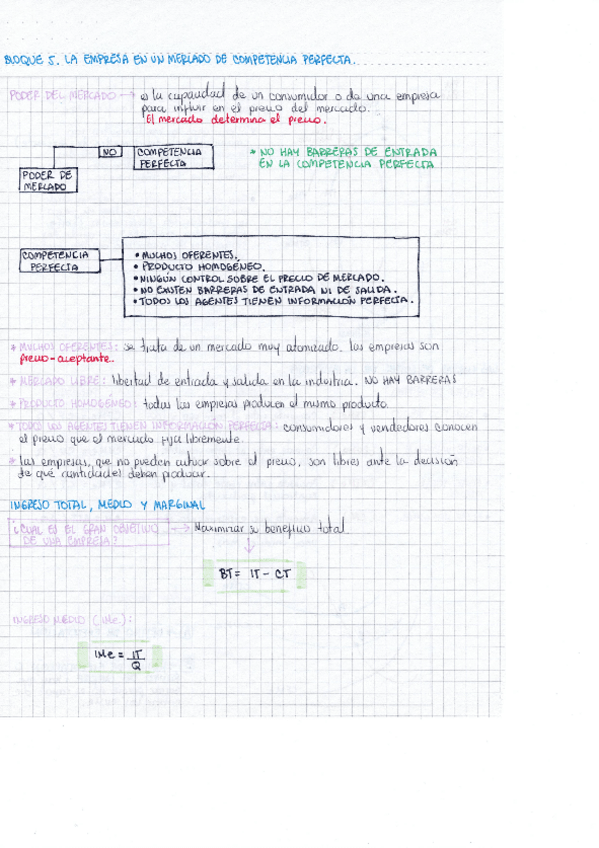 BLOQUE 5. LA EMPRESA EN UN MERCADO DE COMPETENCIA PERFECTA.
PODER DEL MERCADO → es la capacidad de un consumidor o de una empresa
para influir en el precio del mercado.
El mercado determina el precio.
NO
COMPETENCIA
PERFECTA
* NO HAY BARRERAS DE ENTRADA
EN LA COMPETENCIA PERFECTA
PODER DE
MERCADO
COMPETENCIA
PERFECTA
• MUCHOS OFERENTES.
• PRODUCTO HOMOGÉNEO.
• NINGÚN CONTROL SOBRE EL PRECIO DE MERCADO.
• NO EXISTEN BARRERAS DE ENTRADA NI DE SALIDA.
• TODOS LOS AGENTES TIENEN INFORMACIÓN PERFECTA.
* MUCHOS OFERENTES: se trata de un mercado muy atomizado. las empresas son
precio-aceptante.
* MERCADO LIBRE: libertad de entrada y salida en la industria. NO HAY BARRERAS
* PRODUCTO HOMOGÉNEO: todas las empresas producen el mismo producto.
* TODOS LOS AGENTES TIENEN INFORMACIÓN PERFECTA: consumidores y vendedores conocen
el precio que el mercado fija libremente.
* las empresas, que no pueden actuar sobre el precio, son libres ante la decisión
de qué cantidades deben producir.
INGRESO TOTAL, MEDIO Y MARGINAL
¿CUAL ES EL GRAN OBJETIVO
DE UNA EMPRESA?
→ Maximizar su beneficio total
BT = IT - CT
INGRESO MEDIO (IMe):
IMe = IT
Q